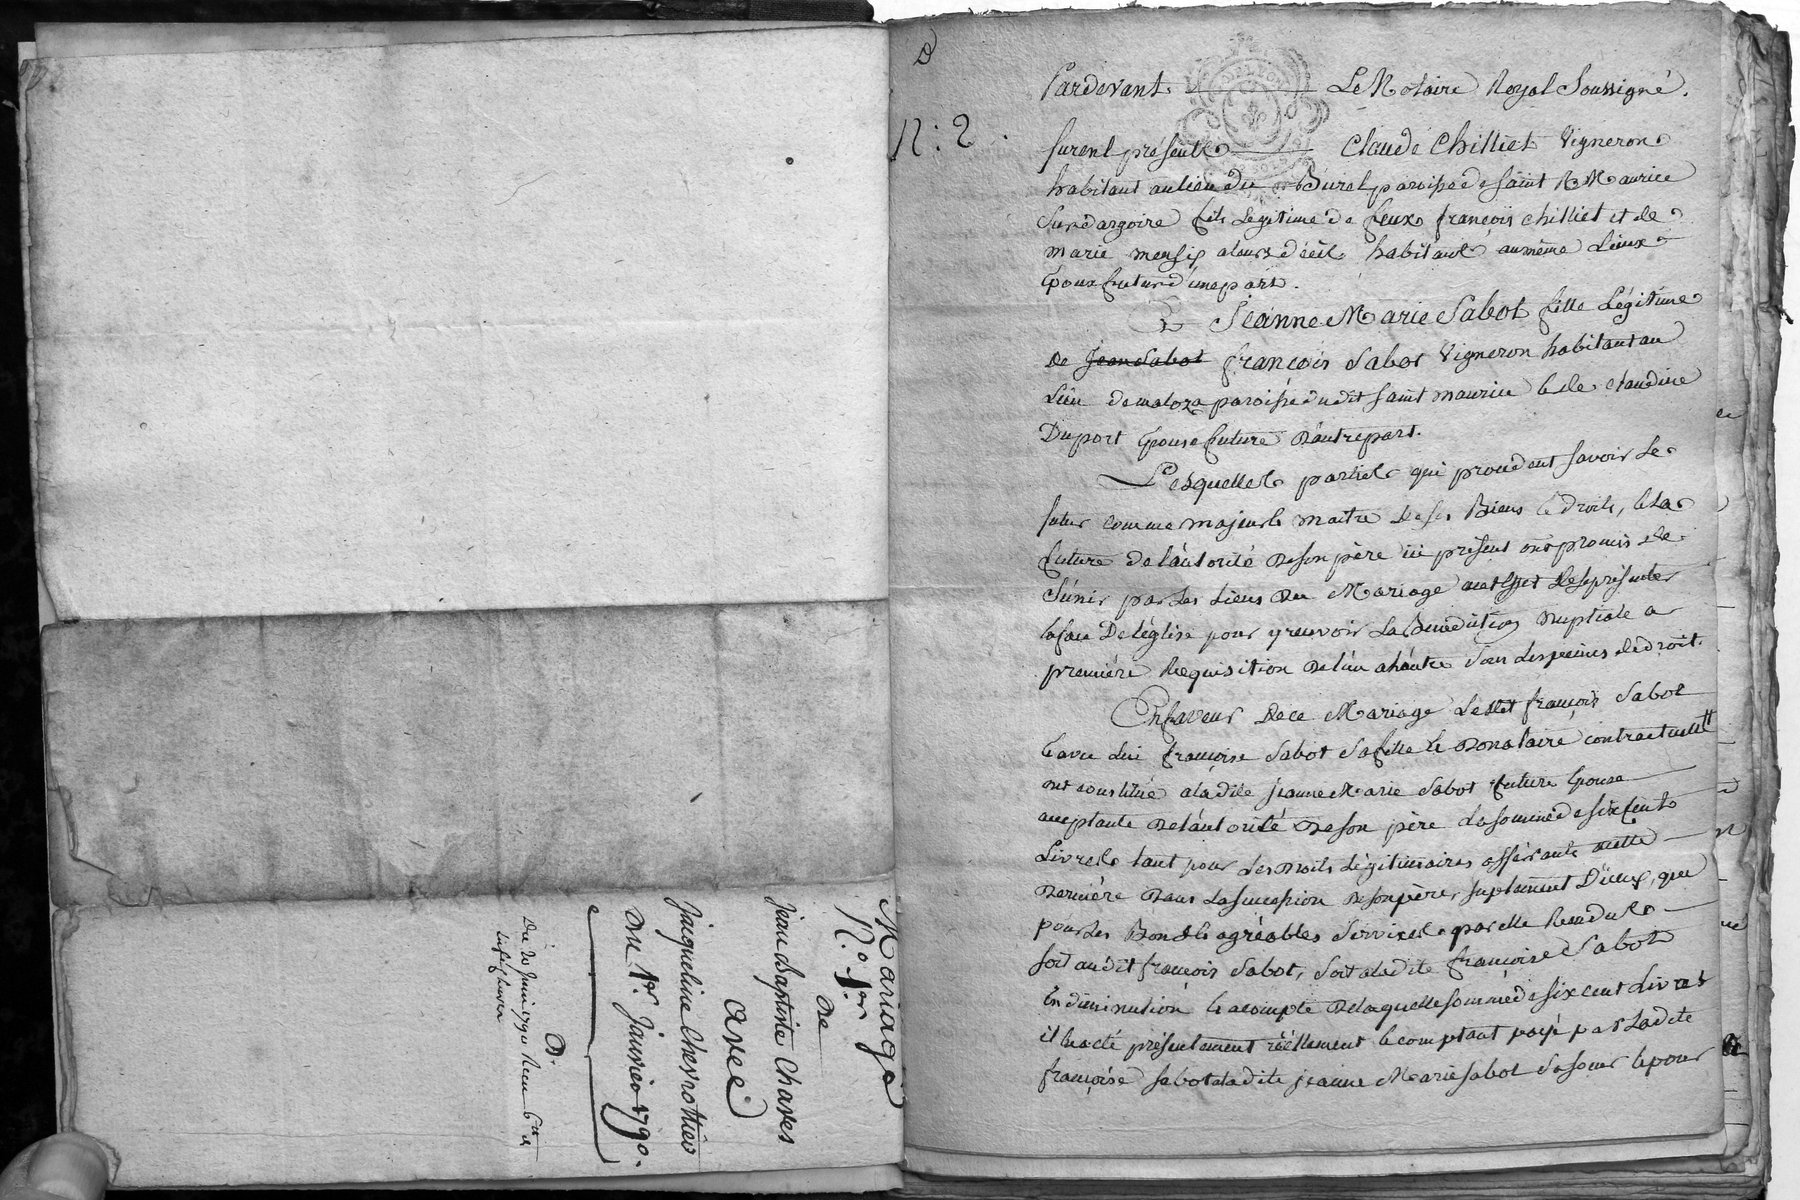 Mariage
N.o 1er
De
Jean Baptiste Charles
avec
Jacqueline Chevrottier
Du 1er. Janvier 1790.
D.
Du 20 Juin 1790 Reçu 6
D
N: 2.
Pardevant Le Notaire Royal Soussigné.
furent présents Claude Chilliet Vigneron
habitant au lieu du Burel paroisse de saint Maurice
Sur dargoire fils Légitime de feux françois chilliet et de
marie habitant au même Lieux
Epoux futur d'une part.
Et Jeanne Marie Sabot fille Légitime
De Jean Sabot françois Sabot Vigneron habitant au
Lieu de paroisse dudit saint maurice & de claudine
Duport Epouse future D'autre part.
Lesquelles parties qui procedent savoir Le
futur comme majeur & maitre De ses Biens & droits, & La
future de l'autorité De son père ici présent ont promis de
s'unir par Les Liens Du Mariage à cet effet de se présenter
la face De l'église pour y recevoir La Bénédiction Nuptiale a
première Requisition De l'un a l'autre sous Les peines de droit.
En faveur De ce Mariage Ledit françois Sabot
& avec Lui françoise Sabot Sa fille & Donataire contractuelle
ont constitué a ladite Jeanne Marie Sabot future Epouse
acceptante De l'autorité De son père La somme de six cent
Livres tant pour Les Droits Légitimaires afférants a cette
Dernière Dans La succession De son père, suplement D'iceux, que
pour Les Bons & agréables Services par elle Rendus
soit audit françois Sabot, soit a ladite françoise Sabot
En diminution & acompte De laquelle somme de six cent Livres
il lui a été présentement réellement & comptant payé par Ladite
françoise Sabot a ladite jeanne Marie Sabot sa soeur & pour